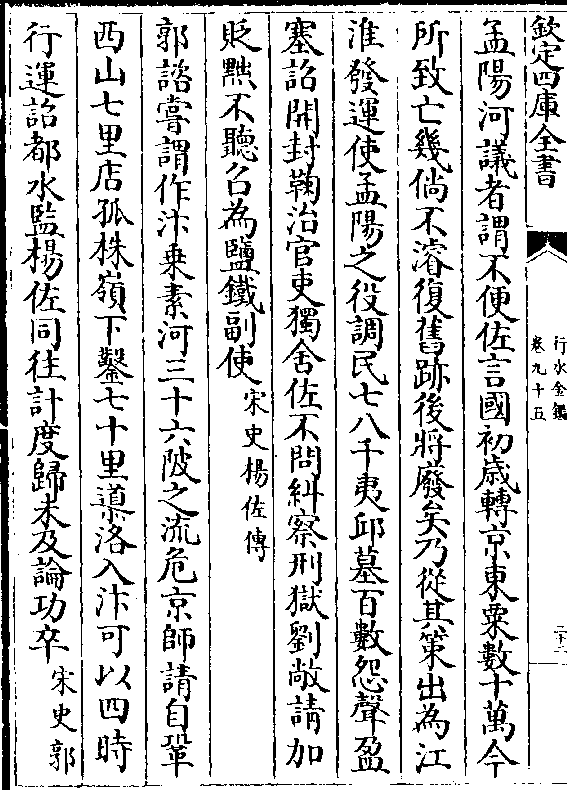 欽定四庫全書
行水金鑑
卷九十五
孟陽河議者謂不便佐言國初歲轉京東粟數十萬今
所致亡幾倘不濬復舊跡後將廢矣乃從其策出為江
淮發運使孟陽之役調民七八千夷邱墓百數怨聲盈
塞詔開封鞫治官吏獨舍佐不問糾察刑獄劉敞請加
貶黜不聽召為鹽鐵副使宋史楊佐傳
郭諮嘗謂作汴乗素河三十六陂之流危京師請自鞏
西山七里店孤株嶺下鑿七十里導洛入汴可以四時
行運詔都水監楊佐同往計度歸未及論功卒宋史郭